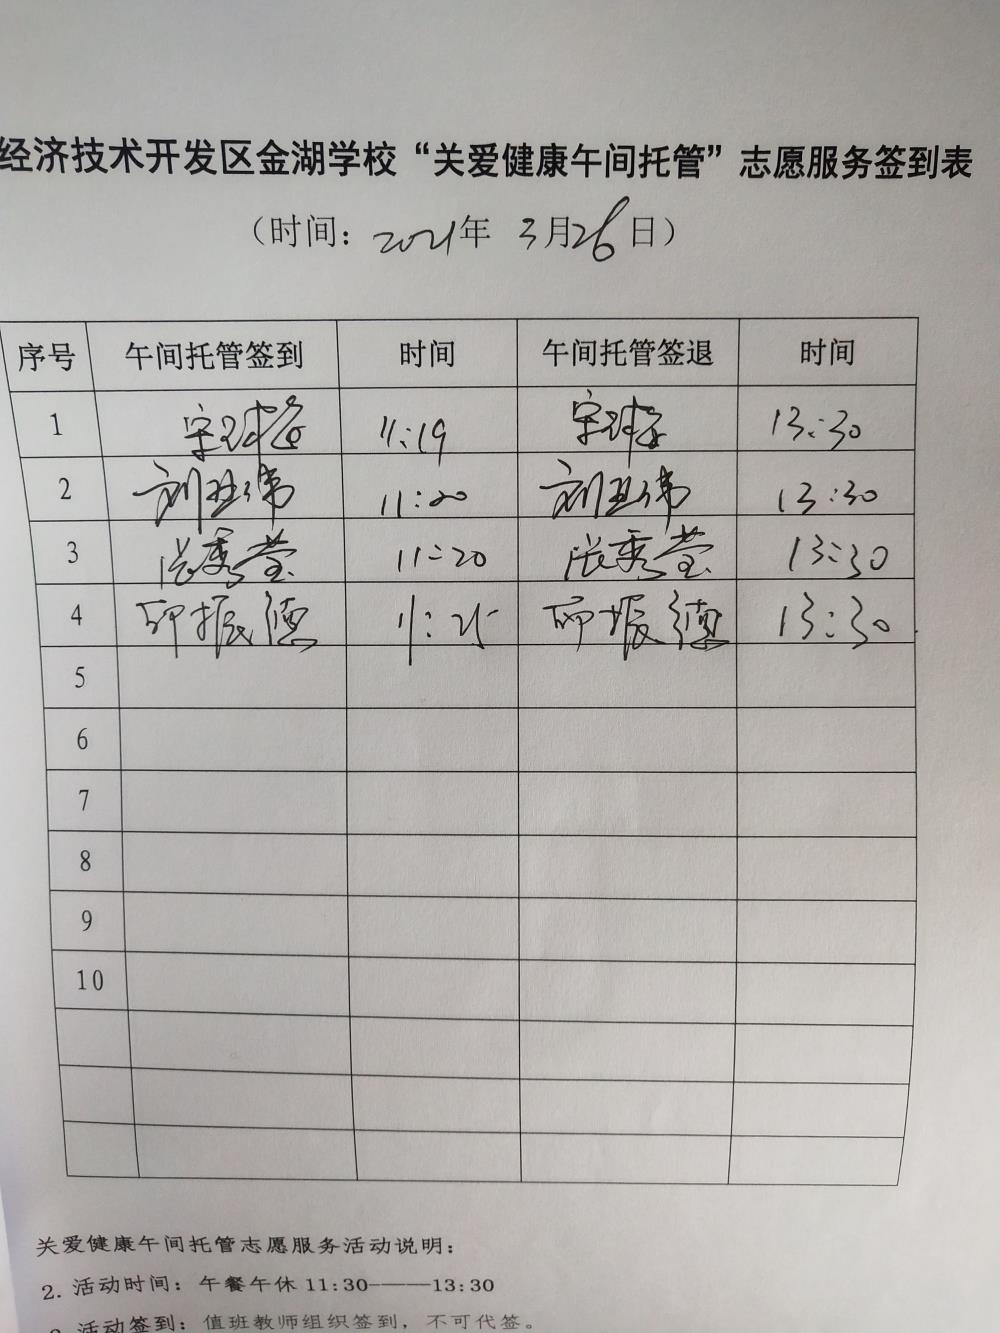 经济技术开发区金湖学校“关爱健康午间托管”志愿服务签到表
（时间：2021年 3月26日）
序号 午间托管签到 时间 午间托管签退 时间
1 11:19 13:30
2 刘亚伟 11:20 刘亚伟 13:30
3 张秀莹 11:20 张秀莹 13:30
4 振德 11:25 振德 13:30
5
6
7
8
9
10
关爱健康午间托管志愿服务活动说明：
2. 活动时间：午餐午休 11:30———13:30
活动签到：值班教师组织签到，不可代签。